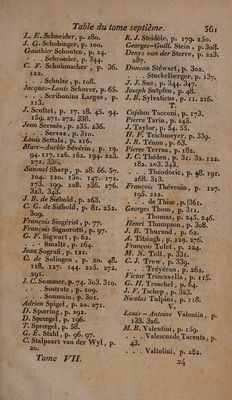 Table du tome septième. 361
L. E. Schneider, p. 280.
J. G. Schobinger, p. 100.
Gauthier Schouten, p. 24.
. . . Schroeder, p. 344.
C. F. Schulmacher, p. 36.
122.
. . . Schulze, p. 108.
Jacques-Louis Schurer, p. 65.
. . . Scribonius Largus, p.
113.
J. Scultet, p. 17. 18. 45. 94.
159. 271. 272. 338.
Jean Sermès, p. 235. 236.
. . . Servaz, p. 310.
Louis Settala, p. 216.
Marc-Aurèle Sévérin, p. 19.
94. 117. 126. 162. 194. 223.
271. 335.
Samuel Sharp, p. 28. 56. 57.
104. 120. 130. 147. 172.
173. 199. 228. 236. 276.
323. 343.
J. B. de Siébold, p. 263.
C. G. de Siébold, p. 81. 252.
309.
François Siegérist, p. 77.
François Signorotti, p. 97.
G. F. Sigwart, p. 62.
. . . Smaltz, p. 164.
Jean Sografi, p. 121.
C. de Solingen, p. 20. 48.
118. 127. 144. 225. 272.
291.
J. C. Sommer, p. 74. 303. 310.
. . . Sostrate, p. 209.
. . . Soumain, p. 301.
Adrien Spigel, p. 20. 271.
D. Spœring, p. 292.
D. Sprœgel, p. 196.
T. Sprœgel, p. 58.
G. E. Stahl, p. 96. 97.
C. Stalpaart van der Wyl, p.
20.
Tome VII.
R. J. Steidèle, p. 179. 250.
Georges-Guill. Stein, p. 308.
Denys van der Sterre, p. 213.
287.
Duncan Stéwart, p. 302.
. . . Stuckelberger, p. 137.
J. J. Sue, p. 344. 347.
Joseph Sutpfen, p. 46.
J. B. Sylvaticus, p. 11. 216.
T.
Cajétan Tacconi, p. 173.
Pierre Tarin, p. 245.
J. Taylor, p. 54. 55.
H. F. Teichmeyer, p. 339.
J. R. Ténon, p. 63.
Pierre Terras, p. 182.
J. C. Théden, p. 31. 32. 122.
182. 203. 343.
. . . Théodoric, p. 98. 191.
268. 343.
François Thévenin, p. 127.
195. 222.
. . . de Thise, p. 361.
Georges Thom, p. 311.
. . . Thomas, p. 243. 246.
Henri Thompson, p. 308.
J. B. Thurand, p. 62.
A. Titsingh, p. 229. 276.
François Tolet, p. 224.
M. N. Toll, p. 331.
C. J. Trew, p. 339.
. . . Tréyéran, p. 261.
Victor Trincavella, p. 115.
G. H. Troschel, p. 64.
J. F. Tschep, p. 323.
Nicolas Tulpius, p. 118.
V.
Louis - Antoine Valentin, p.
133. 326.
M. B. Valentini, p. 159.
. . . Valescus de Tarenta, p.
43.
. . . Valtolini, p. 282.
24